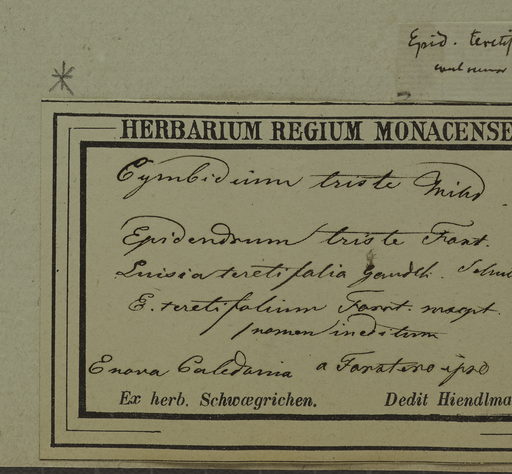 Epid. teretif
HERBARIUM REGIUM MONACENSE
Cymbidium triste Willd
Epidendrum triste Forst.
Luisia teretifolia Gaudch.
E. teretifolium Forst. mscpt.
/nomen ineditum
E nova Caledonia a Forstero ipso
Ex herb. Schwægrichen. Dedit Hiendlma